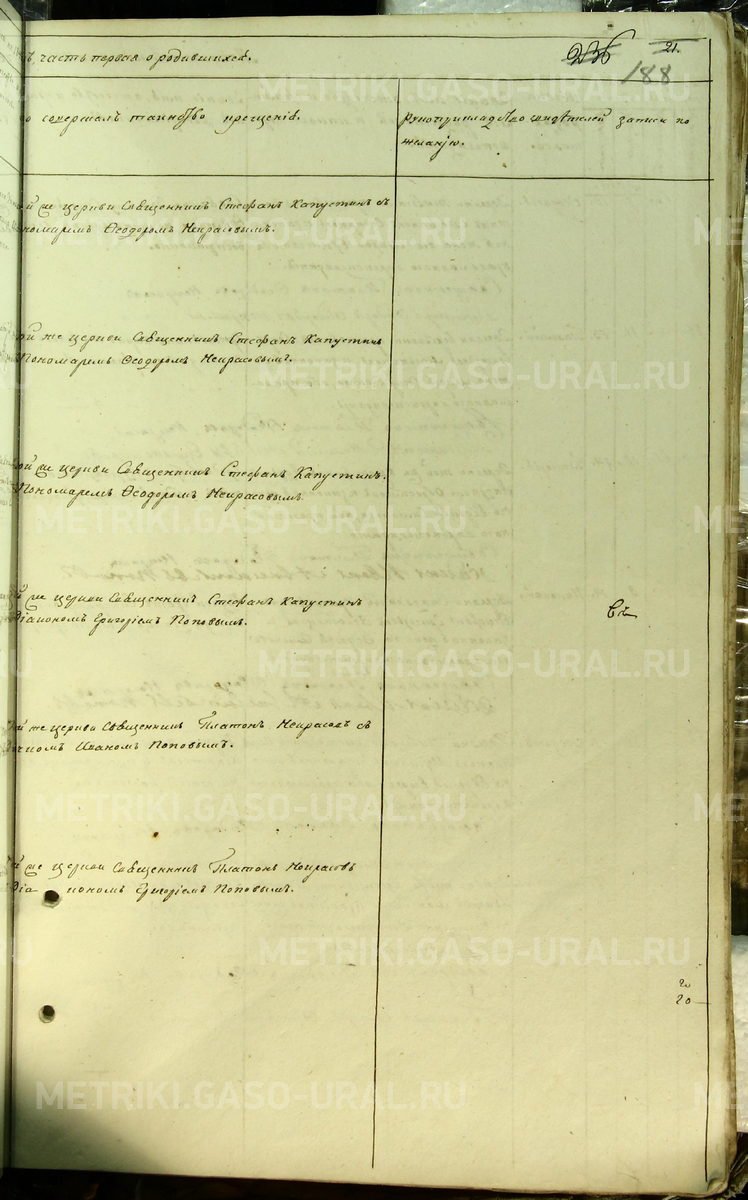 ъ часть первая о родившихся.
21.
188
о совершалъ таинство крещенiя.
рукоприкладство свидѣтелей записи по
желанiю.
й же церкви Священникъ Стефанъ Капустинъ съ
ономаремъ Ѳеодоромъ Некрасовымъ.
ой же церкви Священникъ Стефанъ Капустинъ
Пономаремъ Ѳеодоромъ Некрасовымъ.
ой же церкви Священникъ Стефанъ Капустинъ.
Пономаремъ Ѳеодоромъ Некрасовымъ.
й же церкви Священникъ Стефанъ Капустинъ
Дiакономъ Григорiемъ Поповымъ.
й же церкви Священникъ Платонъ Некрасовъ съ
ячкомъ Иваномъ Поповымъ.
й же церкви Священникъ Платонъ Некрасовъ
Дiа кономъ Григорiемъ Поповымъ.
20
20
METRIKI.GASO-URAL.RU